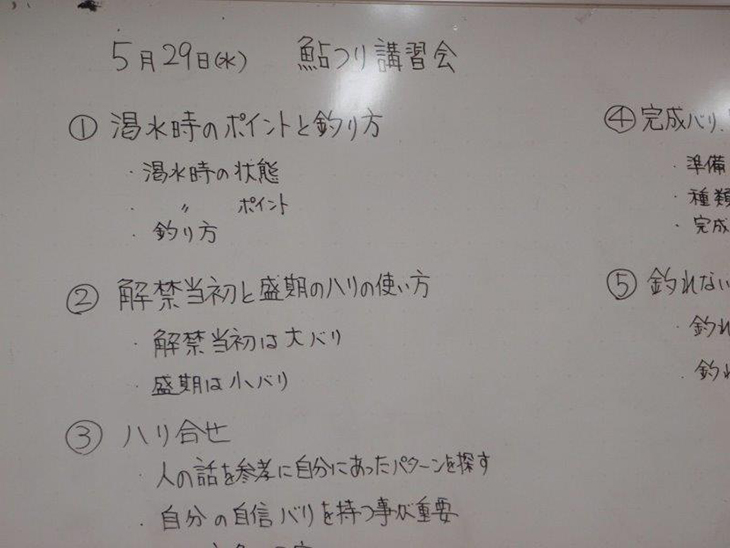 5月29日(水) 鮎つり講習会
① 渇水時のポイントと釣り方
・渇水時の状態
・ 〃 ポイント
・釣り方
② 解禁当初と盛期のハリの使い方
・解禁当初は大バリ
・盛期は小バリ
③ ハリ合せ
・人の話を参考に自分にあったパターンを探す
・自分の自信バリを持つ事が重要
④ 完成バリ
・準備
・種類
・完成
⑤ 釣れない
・釣れ
・釣れ